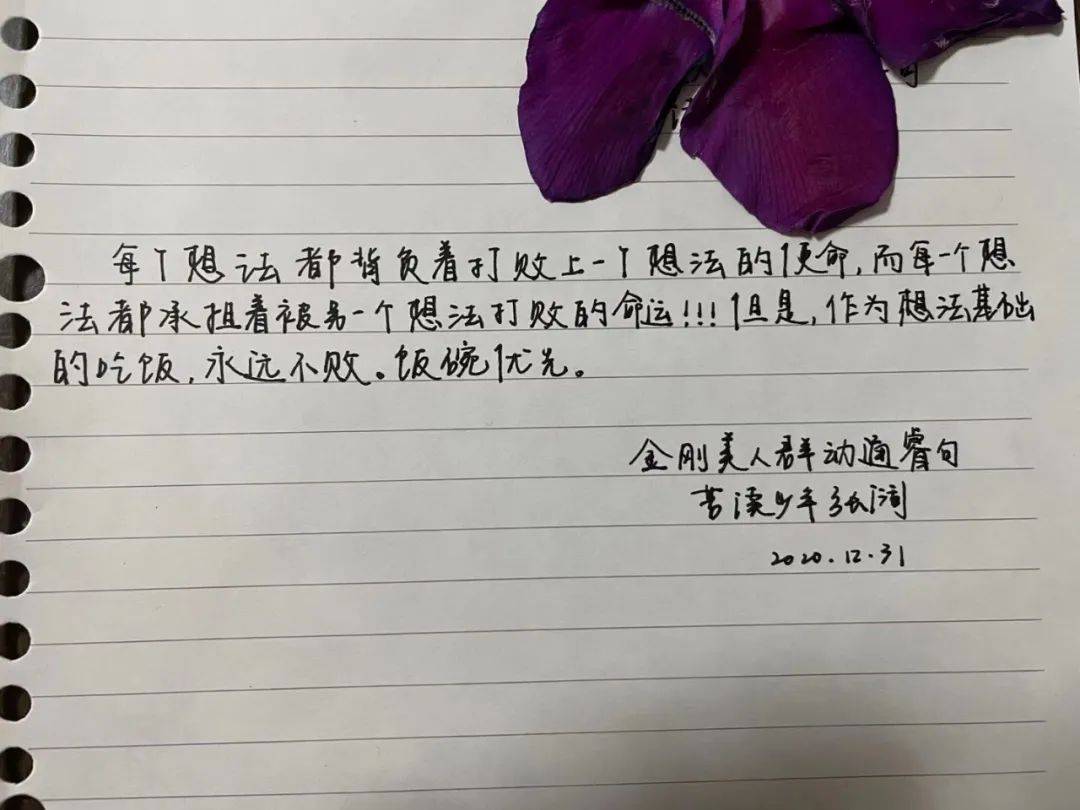 每个想法都背负着打败上一个想法的使命,而每一个想
法都承担着被另一个想法打败的命运!!!但是,作为想法基础
的吃饭,永远不败。饭碗优先。
金刚美人群动通睿句
苦读少年张润
2020.12.31